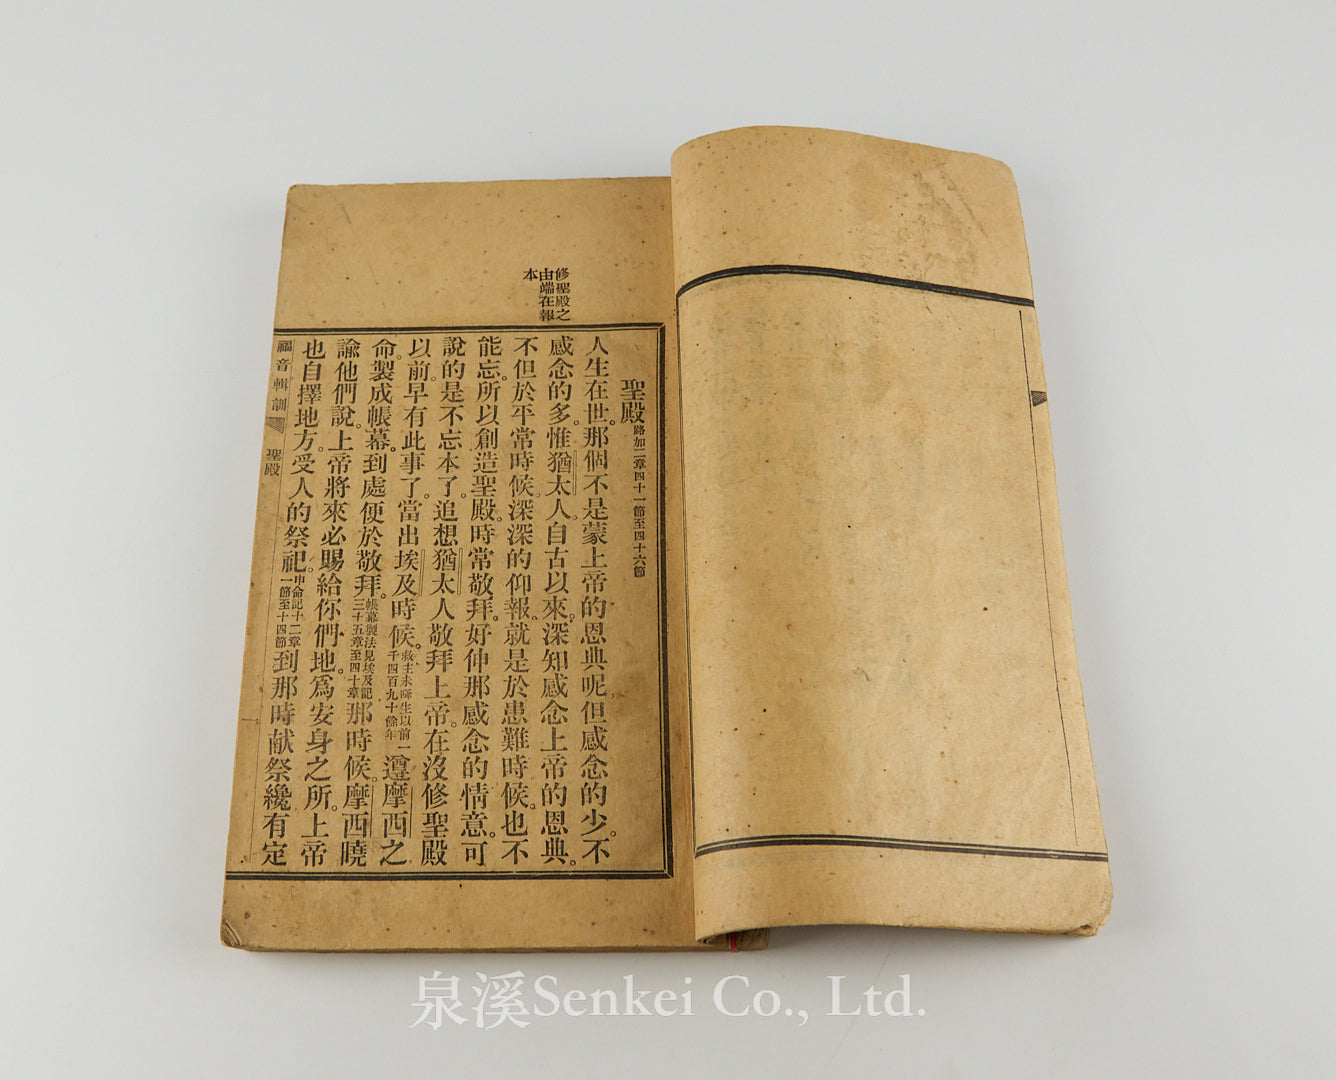 修聖殿之
由端在報
本
聖殿路加二章四十一節至四十六節
人生在世。那個不是蒙上帝的恩典呢。但感念的少。不
感念的多。惟猶太人自古以來。深知感念上帝的恩典。
不但於平常時候。深深的仰報。就是於患難時候。也不
能忘。所以創造聖殿。時常敬拜。好伸那感念的情意。可
說的是不忘本了。追想猶太人敬拜上帝。在沒修聖殿
以前。早有此事了。當出埃及時候。救主未降生以前一千四百九十餘年遵摩西之
命。製成帳幕。到處便於敬拜。帳幕製法見埃及記三十五章至四十章那時候。摩西曉
諭他們說。上帝將來必賜給你們地。爲安身之所。上帝
也自擇地方。受人的祭祀。申命記十二章一節至十四節到那時献祭纔有定
福音輯訓
聖殿
泉溪Senkei Co., Ltd.